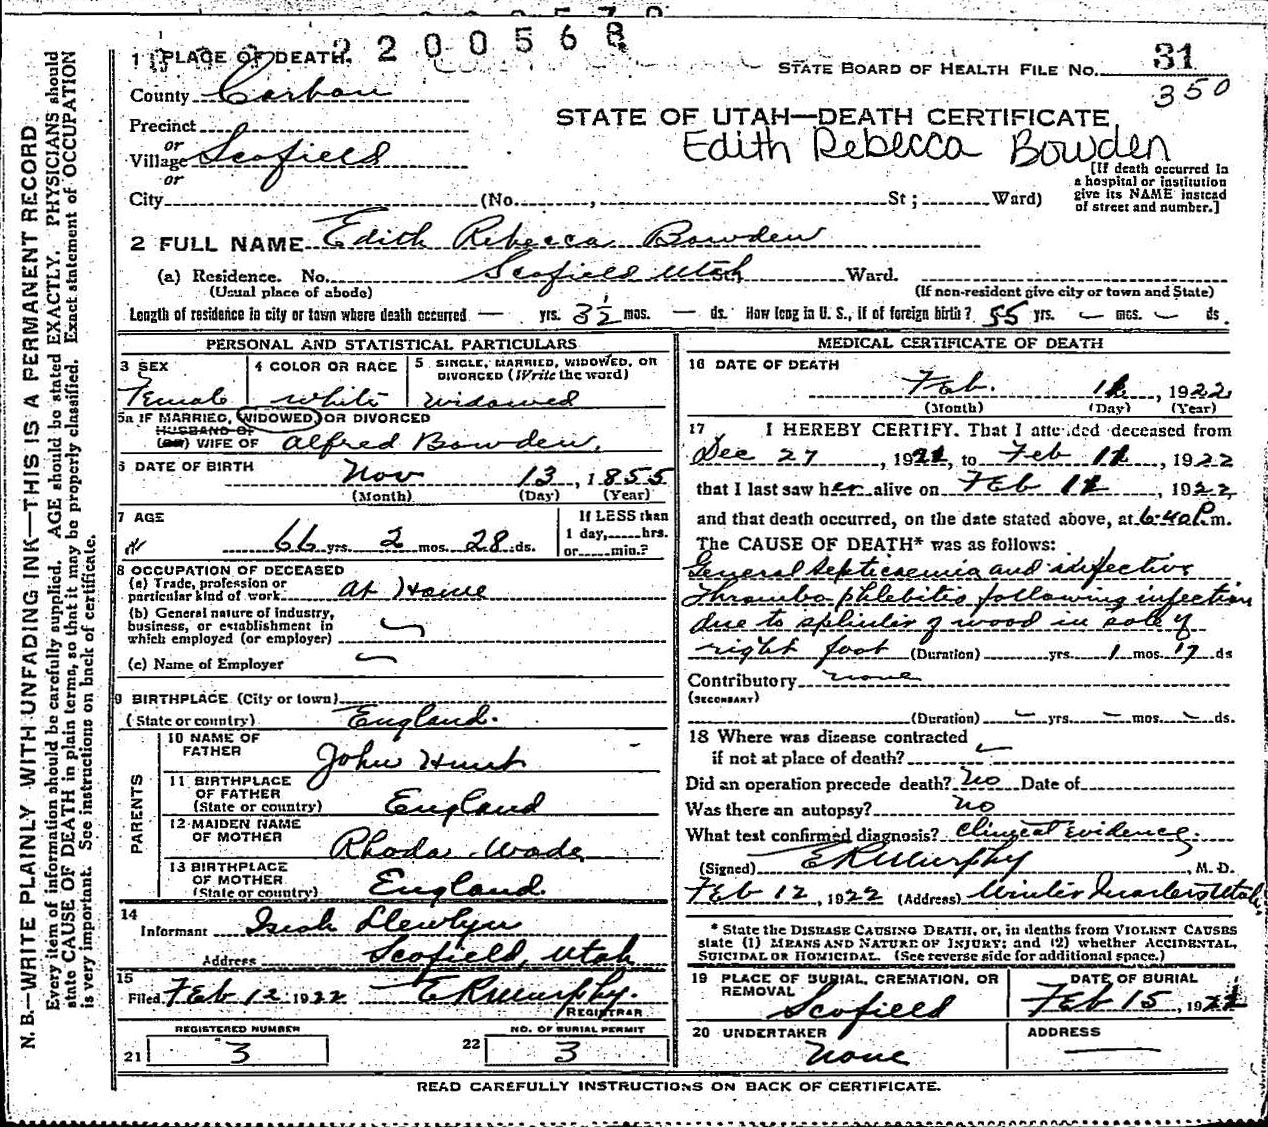 2200568
1 PLACE OF DEATH.
STATE BOARD OF HEALTH FILE NO. 31
350
County Carbon
STATE OF UTAH—DEATH CERTIFICATE
Edith Rebecca Bowden
Precinct
or
Village Scofield
or
[If death occurred in
a hospital or institution
give its NAME instead
of street and number.]
City (No. , St ; Ward)
2 FULL NAME Edith Rebecca Bowden
(a) Residence. No. Scofield Utah Ward.
(Usual place of abode) (If non-resident give city or town and State)
Length of residence in city or town where death occurred — yrs. 3½ mos. — ds. How long in U. S., if of foreign birth? 55 yrs. — mos. — ds.
PERSONAL AND STATISTICAL PARTICULARS
3 SEX Female
4 COLOR OR RACE white
5 SINGLE, MARRIED, WIDOWED, OR
DIVORCED (Write the word)
widowed
5a IF MARRIED, WIDOWED, OR DIVORCED
HUSBAND OF
(or) WIFE OF Alfred Bowden.
6 DATE OF BIRTH Nov 13, 1855
(Month) (Day) (Year)
7 AGE
66 yrs. 2 mos. 28 ds.
If LESS than
1 day, hrs.
or min.?
8 OCCUPATION OF DECEASED
(a) Trade, profession or
particular kind of work at Home
(b) General nature of industry,
business, or establishment in
which employed (or employer)
(c) Name of Employer
9 BIRTHPLACE (City or town)
(State or country) England.
PARENTS
10 NAME OF
FATHER John Hunt
11 BIRTHPLACE
OF FATHER
(State or country) England
12 MAIDEN NAME
OF MOTHER Rhoda Wade
13 BIRTHPLACE
OF MOTHER
(State or country) England.
14
Informant Isiah Llewlyn
Address Scofield, Utah
15
Filed Feb 12 1922 E R Murphy.
REGISTRAR
REGISTERED NUMBER
21 3
NO. OF BURIAL PERMIT
22 3
MEDICAL CERTIFICATE OF DEATH
16 DATE OF DEATH
Feb. 11, 1922
(Month) (Day) (Year)
17 I HEREBY CERTIFY. That I attended deceased from
Dec 27, 1921, to Feb 11, 1922
that I last saw her alive on Feb 11, 1922
and that death occurred, on the date stated above, at 6:40 P.m.
The CAUSE OF DEATH* was as follows:
General septicaemia and infective
thrombo phlebitis following infection
due to splinter of wood in sole of
right foot (Duration) yrs. 1 mos. 17 ds
Contributory none
(SECONDARY)
(Duration) — yrs. — mos. — ds.
18 Where was disease contracted
if not at place of death?
Did an operation precede death? no Date of
Was there an autopsy? no
What test confirmed diagnosis? Clinical Evidence.
(Signed) E R Murphy, M. D.
Feb 12, 1922 (Address) Winter Quarters Utah.
* State the DISEASE CAUSING DEATH, or, in deaths from VIOLENT CAUSES
state (1) MEANS AND NATURE OF INJURY; and (2) whether ACCIDENTAL,
SUICIDAL OR HOMICIDAL. (See reverse side for additional space.)
19 PLACE OF BURIAL, CREMATION, OR
REMOVAL
Scofield
DATE OF BURIAL
Feb 15, 1922
20 UNDERTAKER
none
ADDRESS
READ CAREFULLY INSTRUCTIONS ON BACK OF CERTIFICATE.
N. B.—WRITE PLAINLY WITH UNFADING INK—THIS IS A PERMANENT RECORD
Every item of information should be carefully supplied. AGE should be stated EXACTLY. PHYSICIANS should
state CAUSE OF DEATH in plain terms, so that it may be properly classified. Exact statement of OCCUPATION
is very important. See instructions on back of certificate.